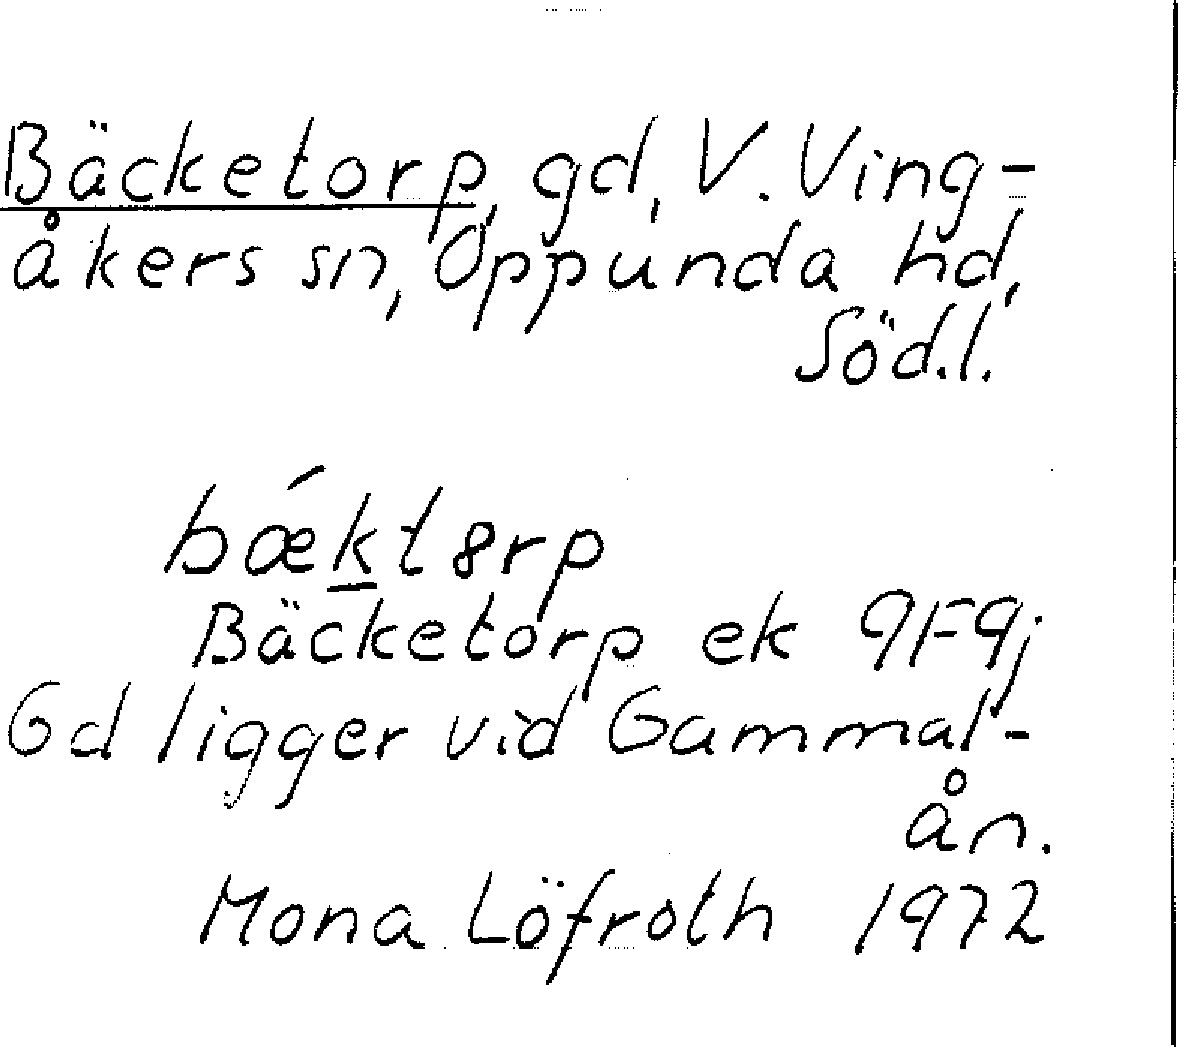 Bäcketorp, gd, V. Ving-
åkers sn, Oppunda hd,
Söd.l.
bǽk̲t8rp
Bäcketorp ek 9F9j
Gd ligger vid Gammal-
ån.
Mona Löfroth 1972